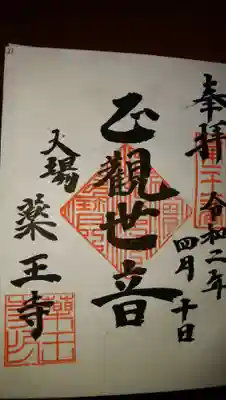 奉拝
令和二年
四月十日
正觀世音
大場
薬王寺